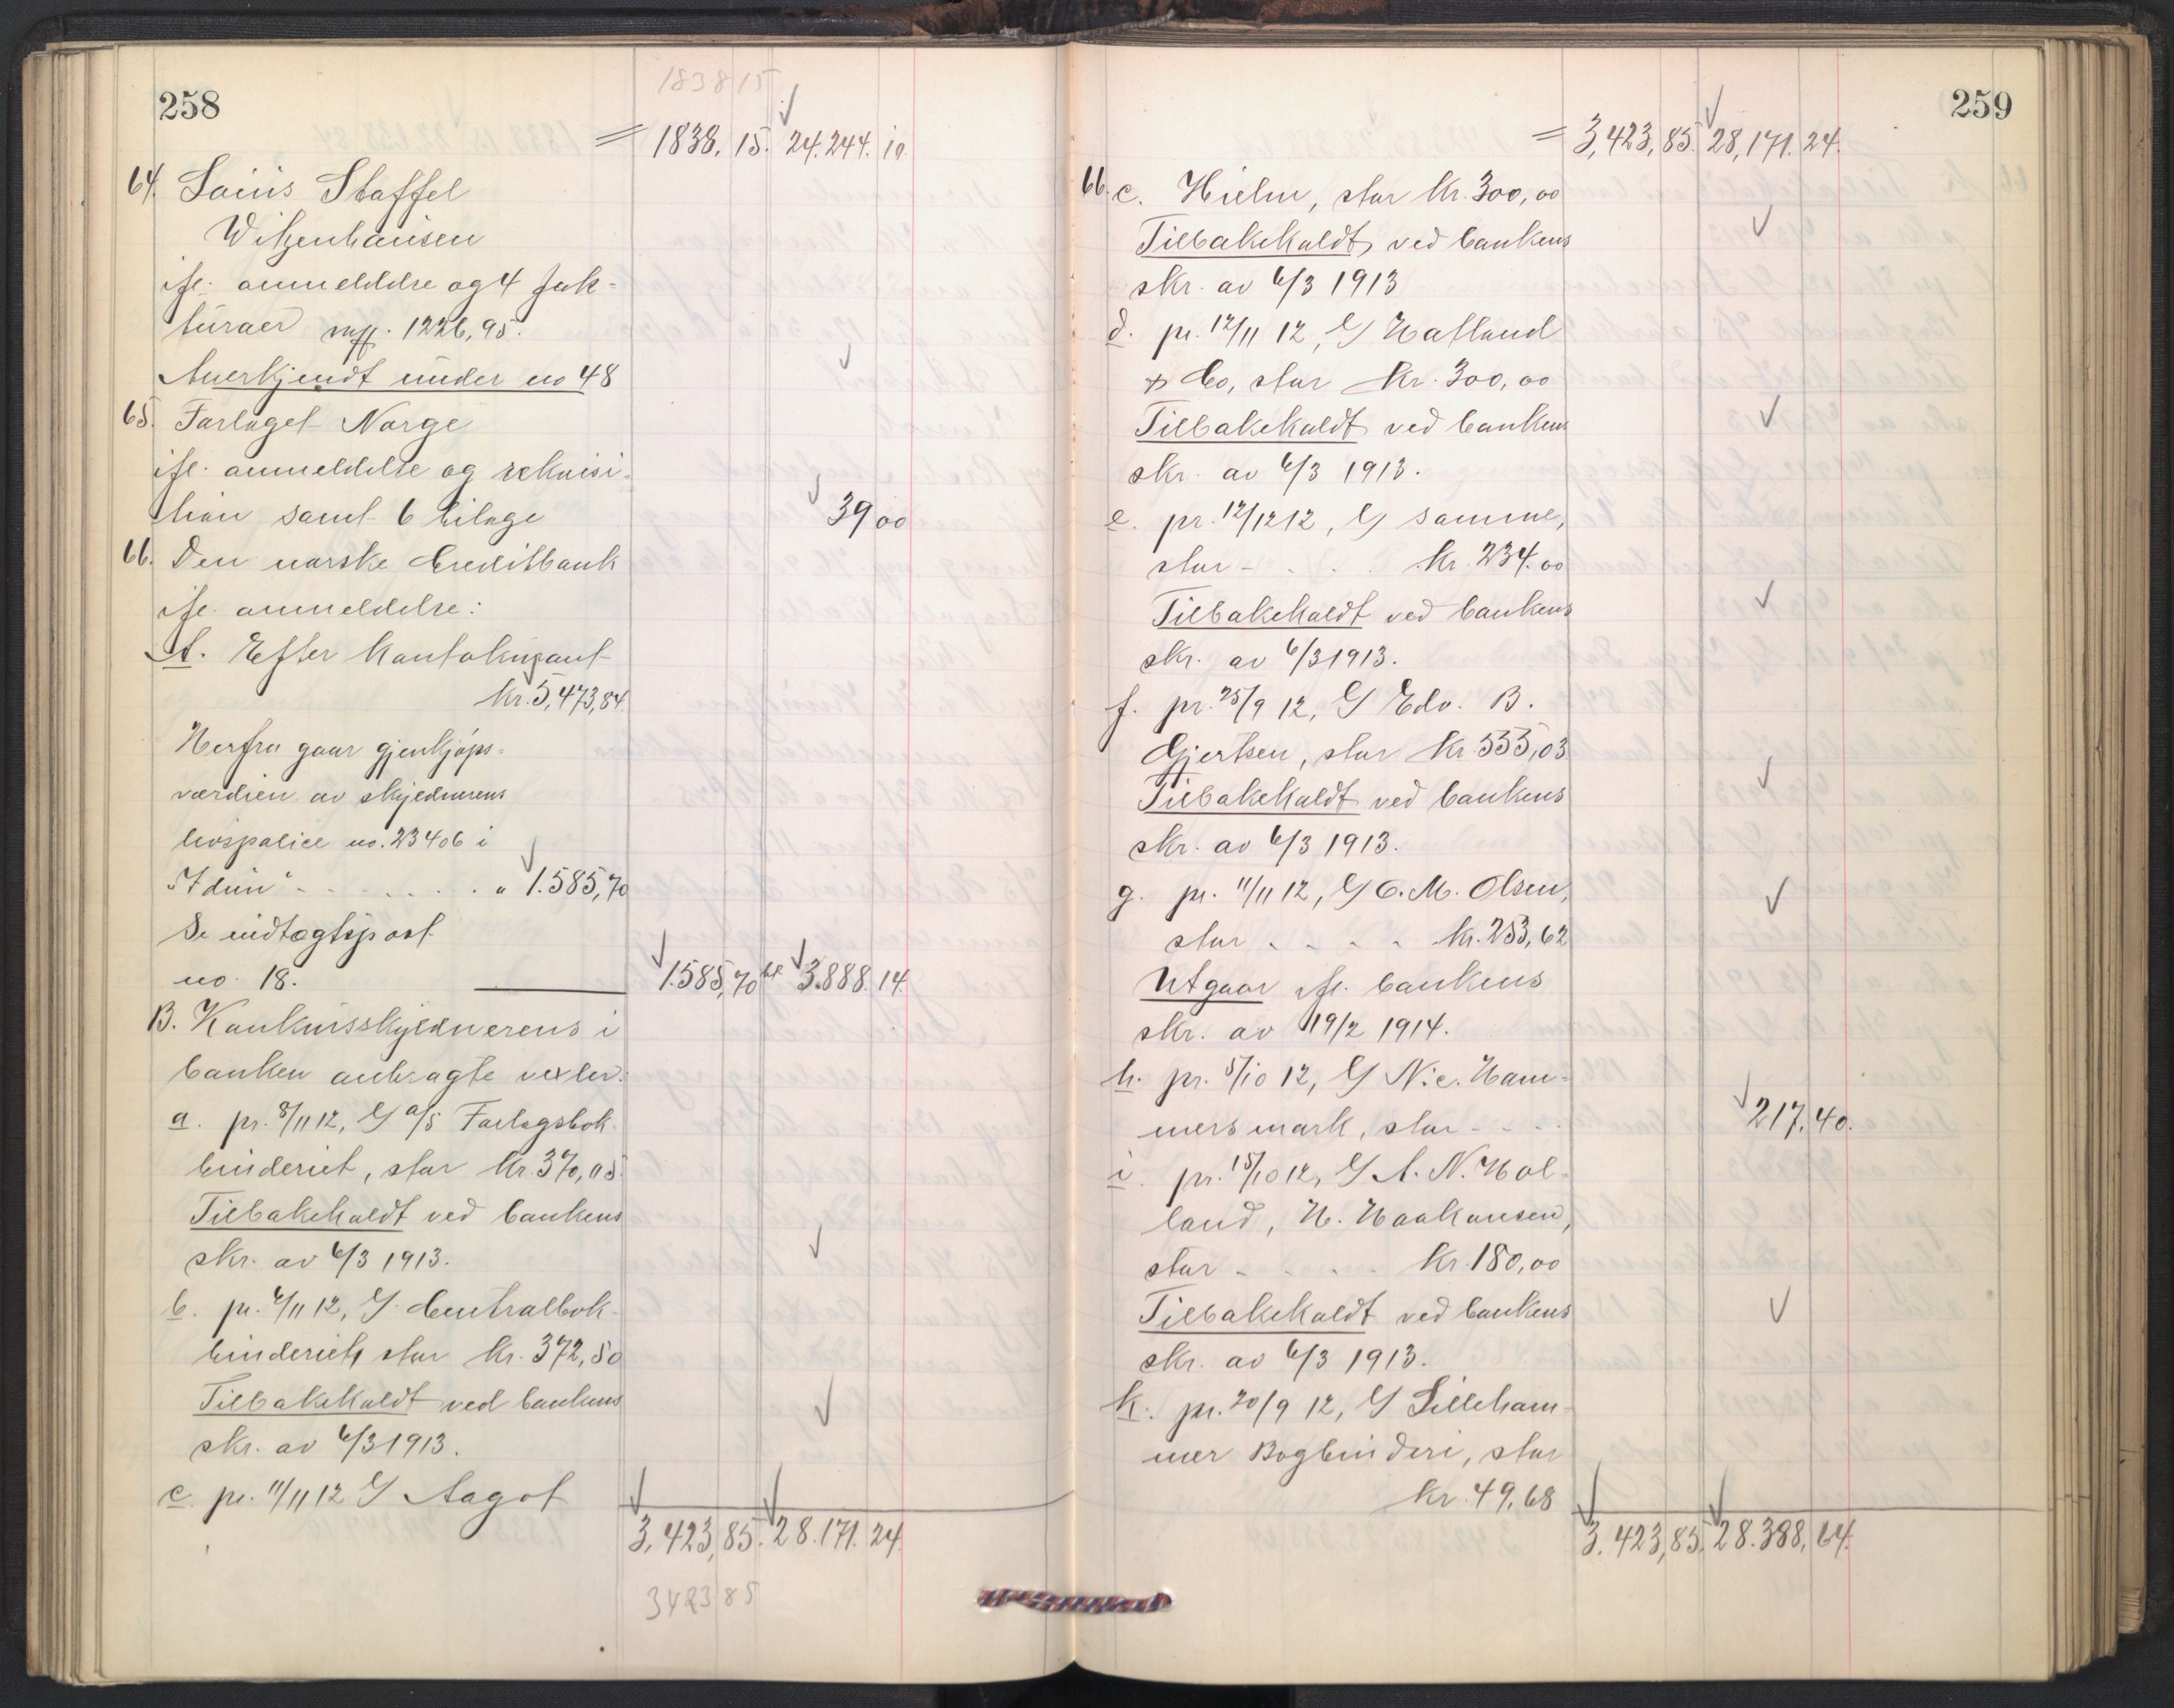 258
1838 15
= 1838, 15. 24.244. 10
64. Louis Staffel
Witzenhausen
ifl. anmeldelse og 4 fak-
turaer 1226,95.
Anerkjendt under no 48
65. Forlaget Norge
ifl. anmeldelse og rekvisi-
tion samt 6 bilage 39 00
66. Den norske Creditbank
ifl. anmeldelse:
A. Efter kontokurant
kr. 5,473,84.
Herfra gaar gjenkjøps-
værdien av skyldnerens
livspolice no. 23406 i
"Idun" - - - - - " 1.585,70
Se indtægtspost
no. 18. 1.585,70 3.888. 14.
B. Konkursskyldnerens i
banken anbragte vexler:
a. pr. 8/11 12, a/s Forlagsbok-
binderiet, stor kr. 370,05.
Tilbakekaldt ved bankens
skr. av 6/3 1913.
b. pr. 6/11 12, Centralbok-
binderiet, stor kr. 372,50
Tilbakekaldt ved bankens
skr. av 6/3 1913.
c. pr. 11/11 12 Aagot
3,423,85. 28.171. 24.
3423 85
259
= 3,423,85. 28,171. 24.
66. c. Hielm, stor kr. 300,00
Tilbakekaldt ved bankens
skr. av 6/3 1913
d. pr. 12/11 12, Hafland
& Co, stor kr. 300,00
Tilbakekaldt ved bankens
skr. av 6/3 1913.
e. pr. 12/12 12, samme,
stor - . . . kr. 234.00
Tilbakekaldt ved bankens
skr. av 6/3 1913.
f. pr. 25/9 12, Edv. B.
Gjertsen, stor kr 555,03
Tilbakekaldt ved bankens
skr. av 6/3 1913.
g. pr. 11/11 12, C. M. Olsen,
stor - - - - kr. 253,62
Utgaar ifl. bankens
skr. av 19/2 1914.
h. pr. 5/10 12, Nic. Ham-
mersmark, stor - - - 217.40.
i. pr. 15/10 12, A. N. Hol-
land, H. Haakonsen,
stor - - - - kr. 180,00
Tilbakekaldt ved bankens
skr. av 6/3 1913.
k. pr. 20/9 12, Lilleham-
mer Bogbinderi, stor
kr. 49,68
3.423,85. 28.388,64.